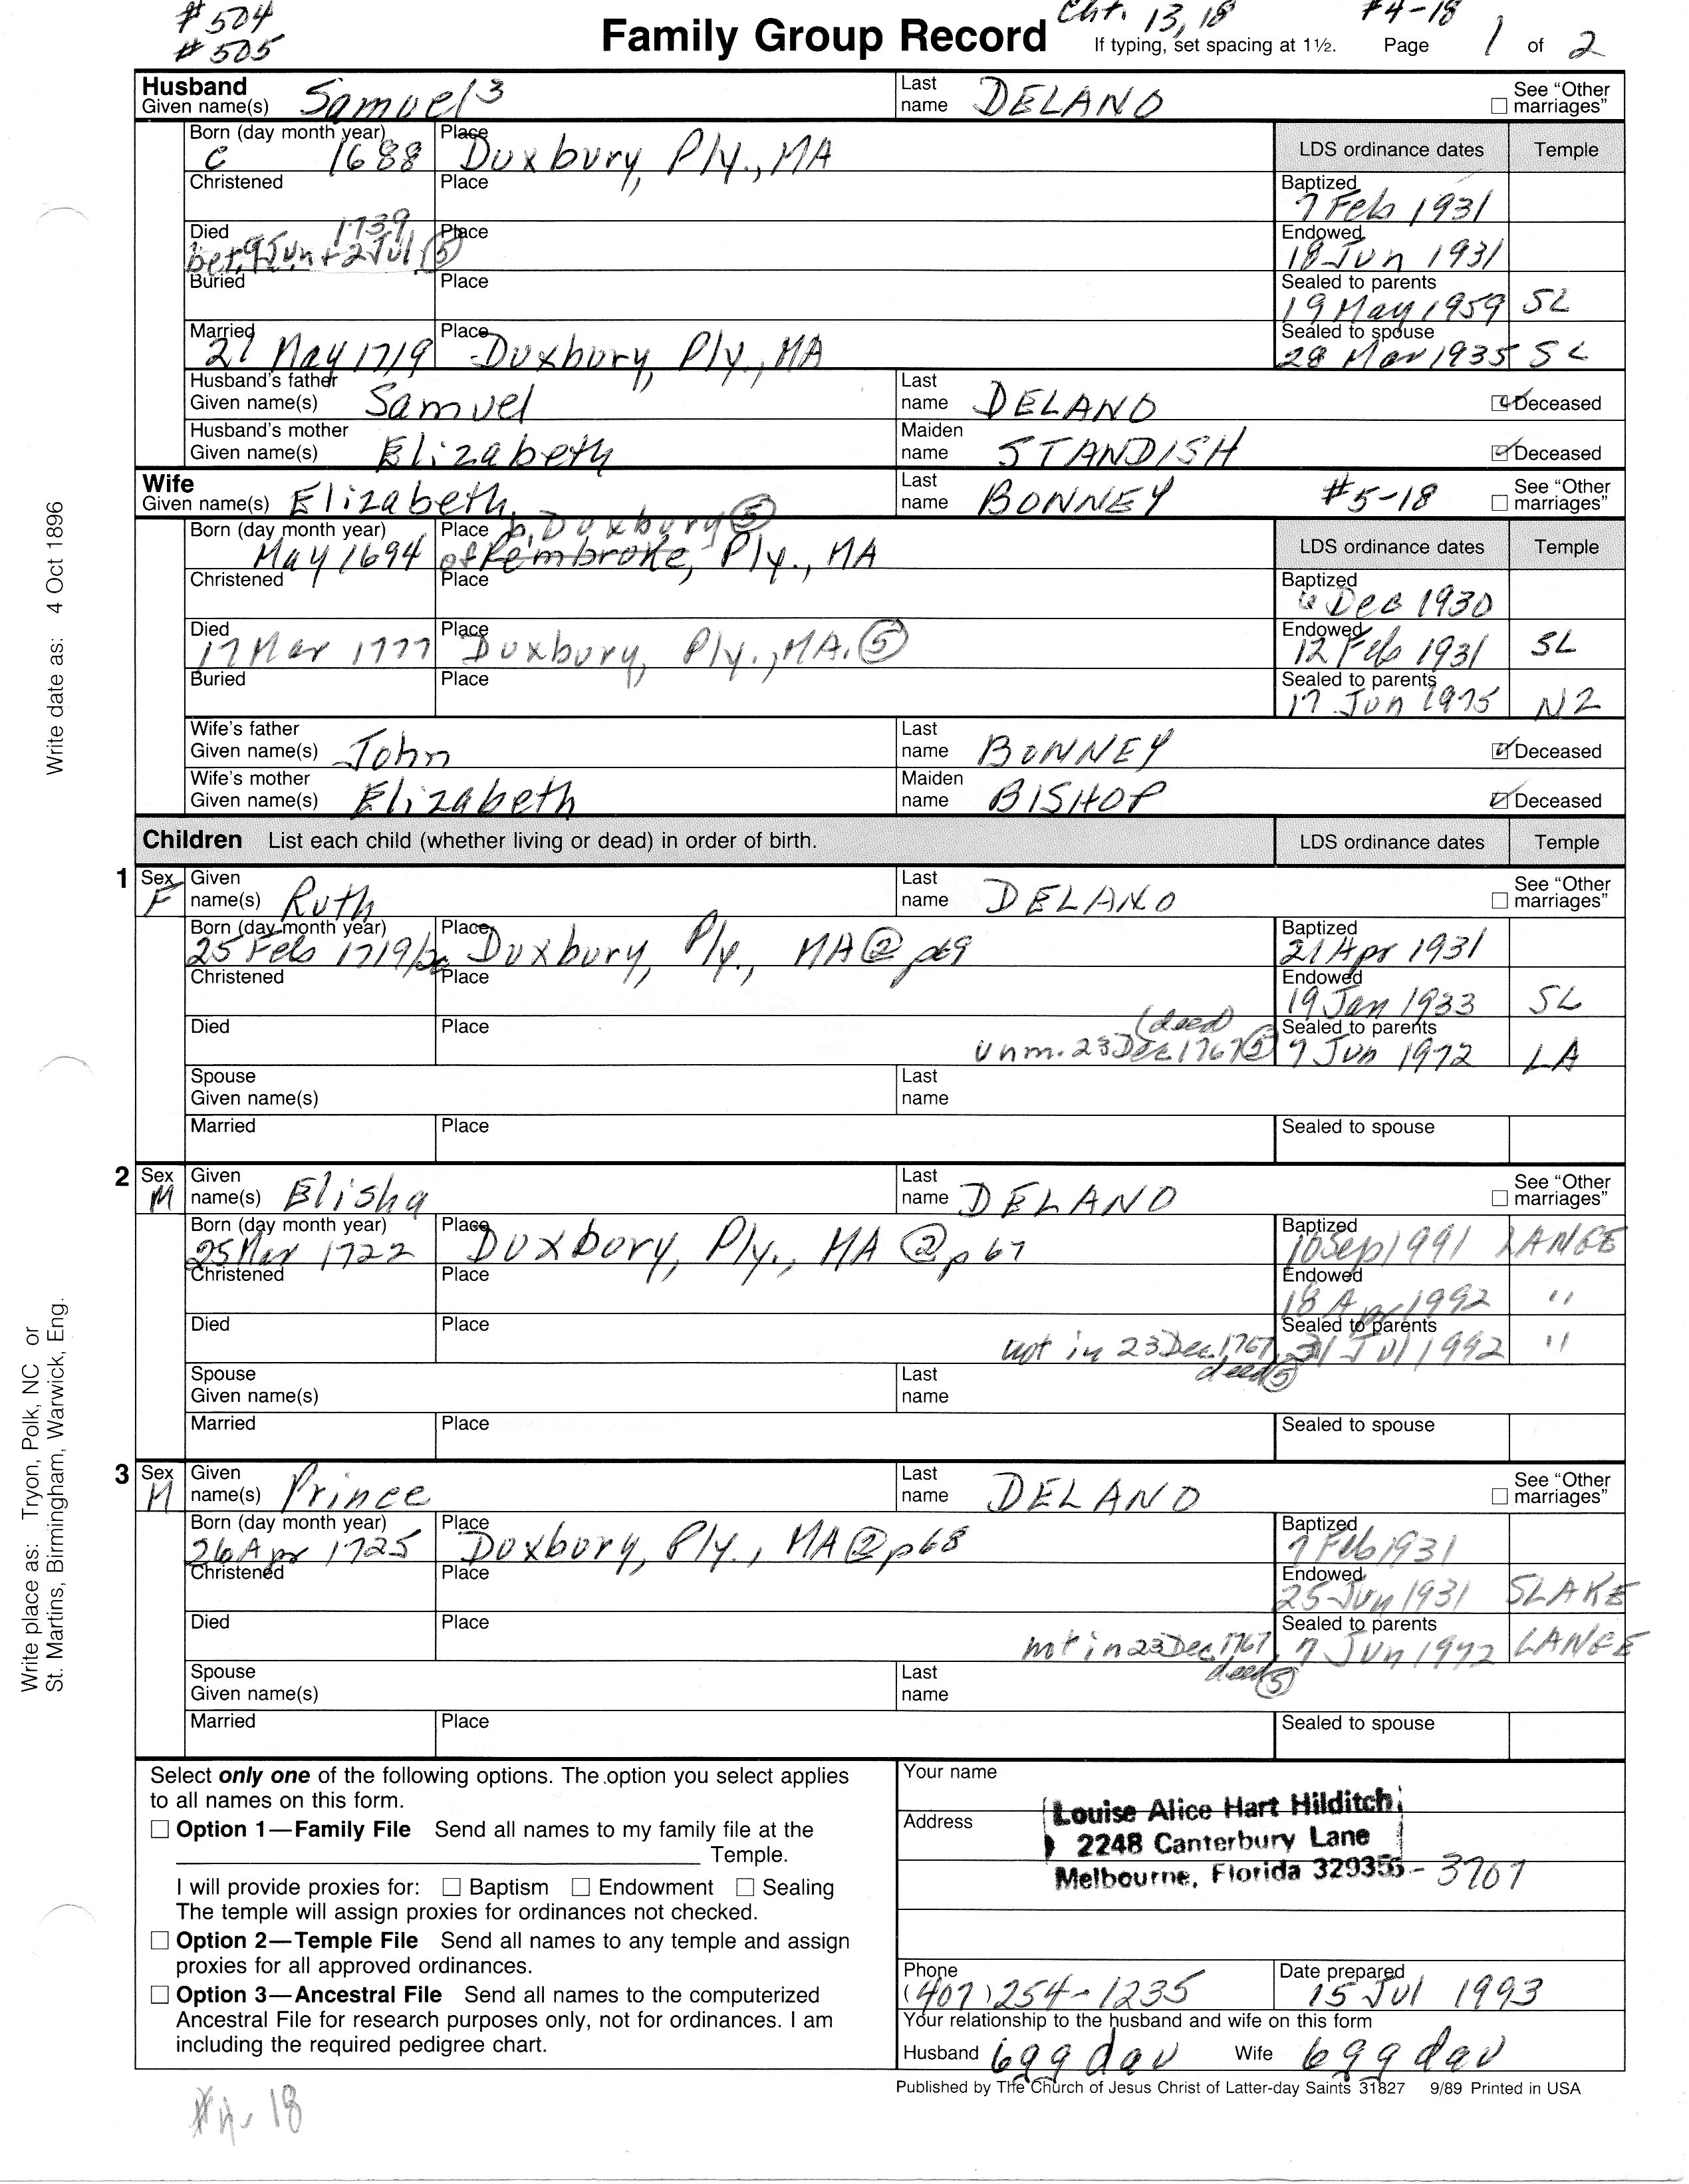 #504 Cht. 13, 18 #4-18
#505 Family Group Record If typing, set spacing at 1½. Page 1 of 2
Husband Given name(s) Samuel3 Last name DELANO See “Other marriages”
Born (day month year) c 1688 Place Duxbury, Ply., MA LDS ordinance dates Temple
Christened Place Baptized 7 Feb 1931
Died bet. 9 Jun + 2 Jul 1739 (5) Place Endowed 18 Jun 1931
Buried Place Sealed to parents 19 May 1959 SL
Married 21 May 1719 Place Duxbury, Ply., MA Sealed to spouse 28 Mar 1935 SL
Husband's father Given name(s) Samuel Last name DELANO Deceased
Husband's mother Given name(s) Elizabeth Maiden name STANDISH Deceased
Wife Given name(s) Elizabeth Last name BONNEY #5-18 See “Other marriages”
b. Duxbury (5)
Born (day month year) May 1694 Place of Pembroke, Ply., MA LDS ordinance dates Temple
Christened Place Baptized Dec 1930
Died 17 Mar 1777 Place Duxbury, Ply., MA. (5) Endowed 12 Feb 1931 SL
Buried Place Sealed to parents 17 Jun 1975 NZ
Wife's father Given name(s) John Last name BONNEY Deceased
Wife's mother Given name(s) Elizabeth Maiden name BISHOP Deceased
Children List each child (whether living or dead) in order of birth. LDS ordinance dates Temple
1 Sex F Given name(s) Ruth Last name DELANO See “Other marriages”
Born (day month year) 25 Feb 1719/20 Place Duxbury, Ply., MA (2) p69 Baptized 21 Apr 1931
Christened Place Endowed 19 Jan 1933 SL
Died Place unm. 23 Dec 1767 (deed) (5) Sealed to parents 7 Jun 1972 LA
Spouse Given name(s) Last name
Married Place Sealed to spouse
2 Sex M Given name(s) Elisha Last name DELANO See “Other marriages”
Born (day month year) 25 Mar 1722 Place Duxbury, Ply., MA (2) p67 Baptized 10 Sep 1991 LANGE
Christened Place Endowed 18 Apr 1992 "
Died Place not in 23 Dec. 1767 deed (5) Sealed to parents 31 Jul 1992 "
Spouse Given name(s) Last name
Married Place Sealed to spouse
3 Sex M Given name(s) Prince Last name DELANO See “Other marriages”
Born (day month year) 26 Apr 1725 Place Duxbury, Ply., MA (2) p68 Baptized 7 Feb 1931
Christened Place Endowed 25 Jun 1931 SLAKE
Died Place not in 23 Dec. 1767 deed (5) Sealed to parents 7 Jun 1972 LANGE
Spouse Given name(s) Last name
Married Place Sealed to spouse
Select only one of the following options. The option you select applies
to all names on this form.
Option 1—Family File Send all names to my family file at the
Temple.
I will provide proxies for: Baptism Endowment Sealing
The temple will assign proxies for ordinances not checked.
Option 2—Temple File Send all names to any temple and assign
proxies for all approved ordinances.
Option 3—Ancestral File Send all names to the computerized
Ancestral File for research purposes only, not for ordinances. I am
including the required pedigree chart.
Your name
Louise Alice Hart Hilditch
Address 2248 Canterbury Lane
Melbourne, Florida 32935-3707
Phone (407) 254-1235 Date prepared 15 Jul 1993
Your relationship to the husband and wife on this form
Husband 6ggdau Wife 6ggdau
Published by The Church of Jesus Christ of Latter-day Saints 31827 9/89 Printed in USA
Write date as: 4 Oct 1896
Write place as: Tryon, Polk, NC or
St. Martins, Birmingham, Warwick, Eng.